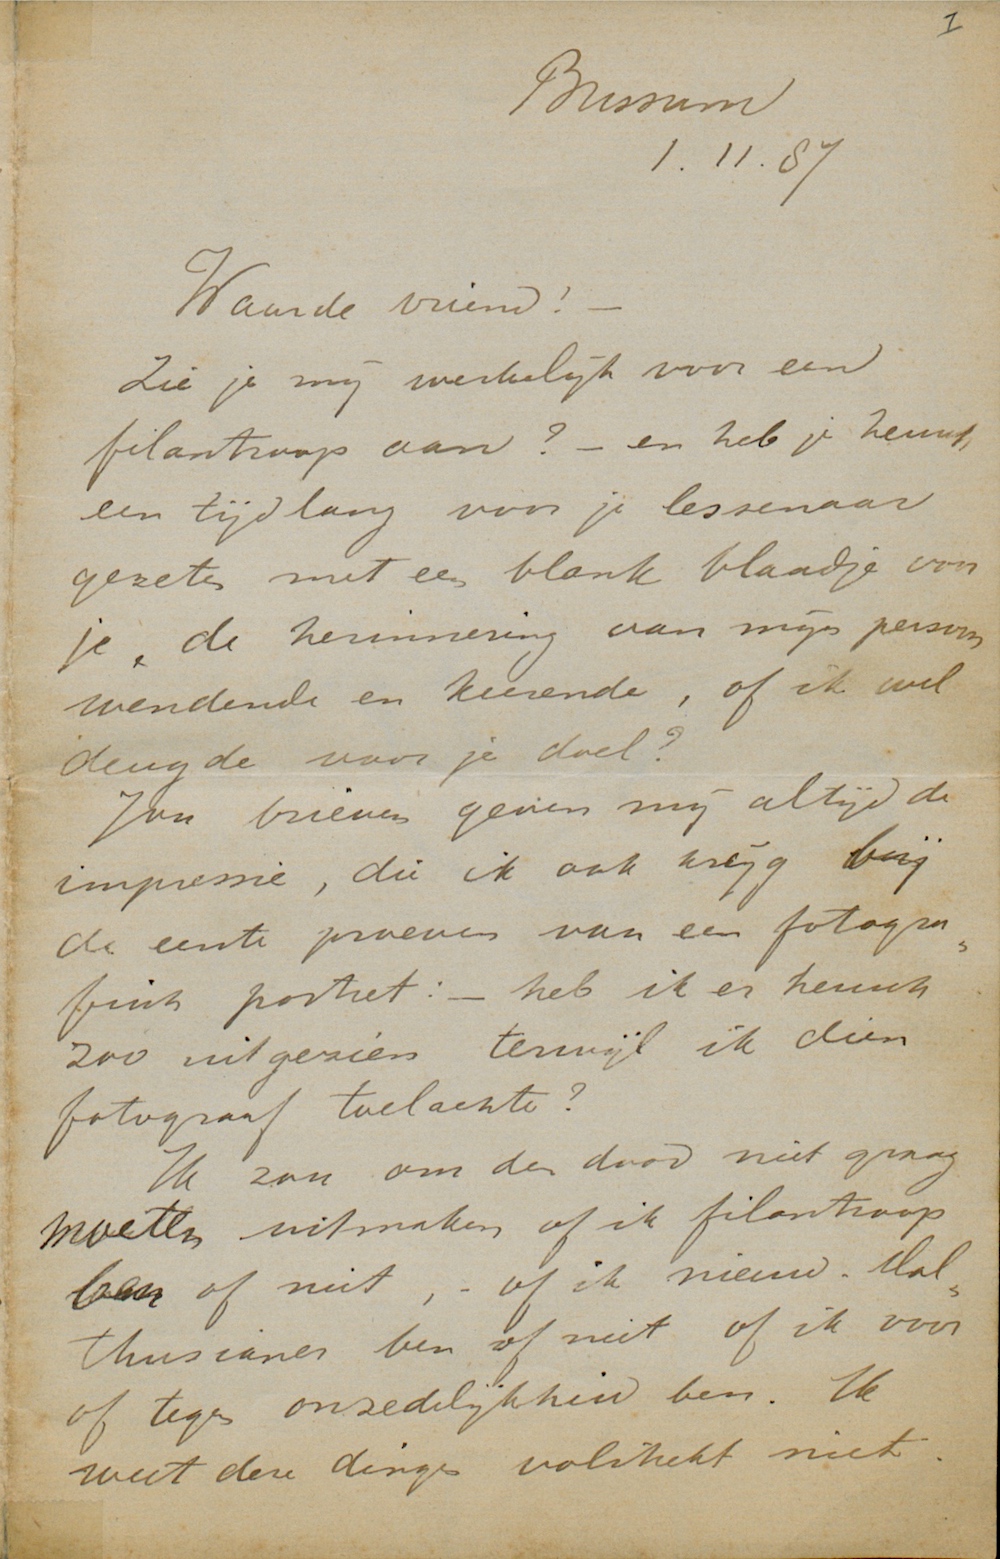 1
Bussum
1. 11. 87
Waarde vriend! —
Zie je mij werkelijk voor een
filantroop aan? — en heb je heusch
een tijd lang voor je lessenaar
gezeten met een blank blaadje voor
je, de herinnering aan mijn persoon
wendende en keerende, of ik wel
deugde voor je doel?
Jou brieven geven mij altijd de
impressie, die ik ook krijg bij
de eerste proeven van een fotogra„
fisch portret: — heb ik er heusch
zoo uitgezien terwijl ik dien
fotograaf toelachte?
Ik zou om den dood niet graag
moeten uitmaken of ik filantroop
ben of niet, - of ik nieuw-Mal„
thusianer ben of niet of ik voor
of tegen onzedelijkheid ben. Ik
weet deze dingen volstrekt niet.